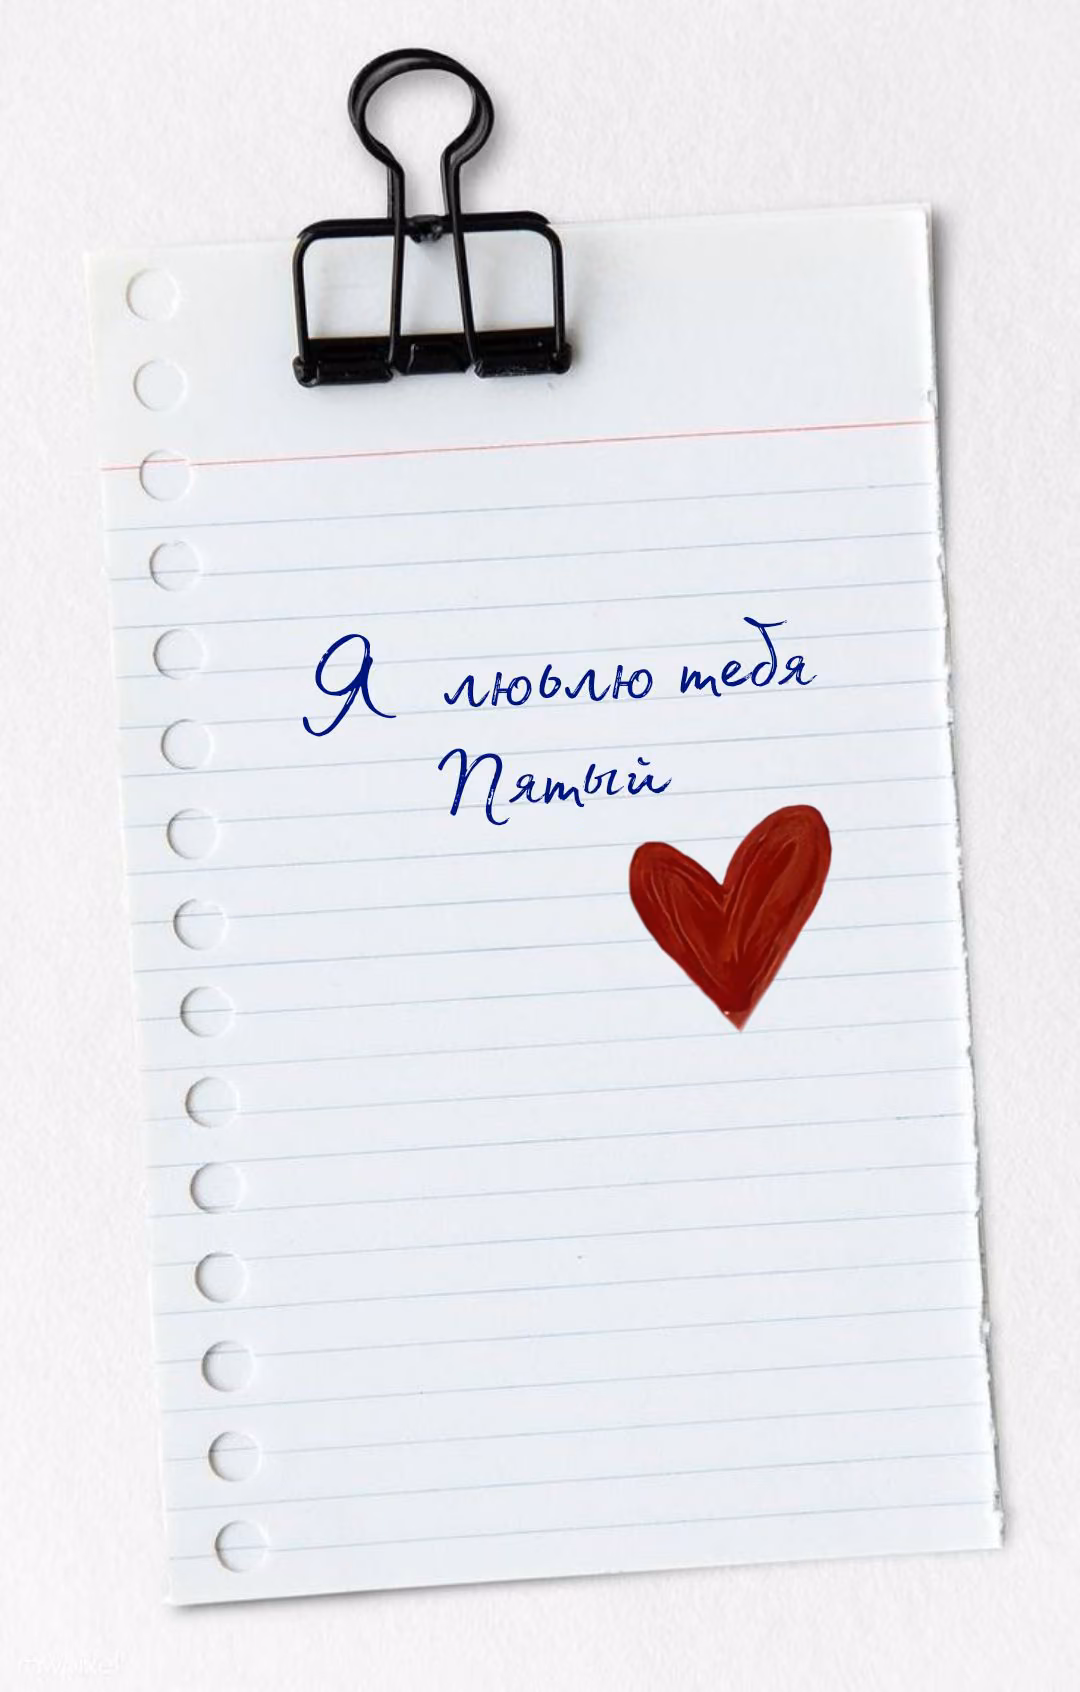 Я люьлю тебя
Пятый